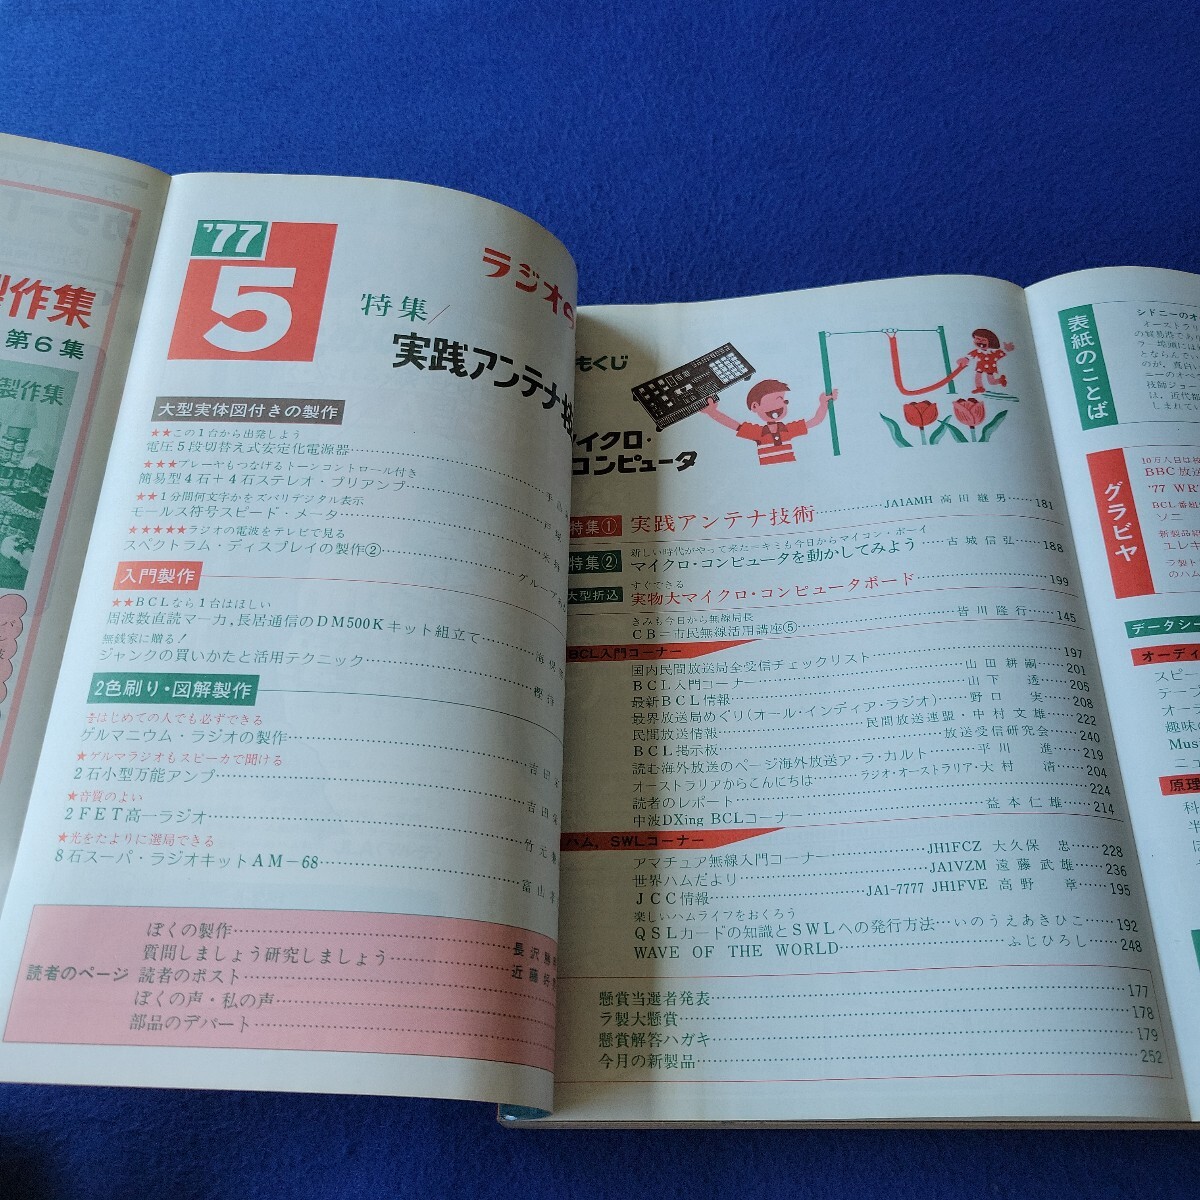 製作集
第6集
製作集
'77
5
ラジオの
特集
実践アンテナ技
大型実体図付きの製作
★★この1台から出発しよう
電圧5段切替え式安定化電源器
★★★プレーヤもつなげるトーンコントロール付き
簡易型4石+4石ステレオ・プリアンプ
★★1分間何文字かをズバリデジタル表示
モールス符号スピード・メータ
★★★★★ラジオの電波をテレビで見る
スペクトラム・ディスプレイの製作②
入門製作
★★BCLなら1台はほしい
周波数直読マーカ,長居通信のDM500Kキット組立て
無銭家に贈る!
ジャンクの買いかたと活用テクニック
2色刷り・図解製作
はじめての人でも必ずできる
ゲルマニウム・ラジオの製作
★ゲルマラジオもスピーカで聞ける
2石小型万能アンプ
★音質のよい
2FET高一ラジオ
★光をたよりに選局できる
8石スーパ・ラジオキットAM-68
読者のページ
ぼくの製作
質問しましょう研究しましょう
読者のポスト
ぼくの声・私の声
部品のデパート
もくじ
マイクロ・
コンピュータ
特集① 実践アンテナ技術 JA1AMH 高田継男 181
新しい時代がやって来た—キミも今日からマイコン・ボーイ
特集② マイクロ・コンピュータを動かしてみよう 古城信弘 188
すぐできる
大型折込 実物大マイクロ・コンピュータボード 199
きみも今日から無線局長
CB-市民無線活用講座⑤ 皆川隆行 145
BCL入門コーナー
国内民間放送局全受信チェックリスト 197
BCL入門コーナー 山田耕嗣 201
最新BCL情報 山下透 205
最界放送局めぐり(オール・インディア・ラジオ) 野口実 208
民間放送情報 民間放送連盟・中村文雄 222
BCL掲示板 放送受信研究会 240
読む海外放送のページ海外放送ア・ラ・カルト 平川進 219
オーストラリアからこんにちは ラジオ・オーストラリア・大村清 204
読者のレポート 224
中波DXing BCLコーナー 益本仁雄 214
ハム,SWLコーナー
アマチュア無線入門コーナー JH1FCZ 大久保忠 228
世界ハムだより JA1VZM 遠藤武雄 236
JCC情報 JA1-7777 JH1FVE 高野章 195
楽しいハムライフをおくろう
QSLカードの知識とSWLへの発行方法 いのうえあきひこ 192
WAVE OF THE WORLD ふじひろし 248
懸賞当選者発表 177
ラ製大懸賞 178
懸賞解答ハガキ 179
今月の新製品 252
表紙のことば
シドニーのオ
グラビヤ
BBC放送
'77 WR
BCL番組
ソニ
新製品
ユレキ
のハム
データシー
オーディ
スピー
テー
オーデ
趣味の
Mus
ニュ
原理